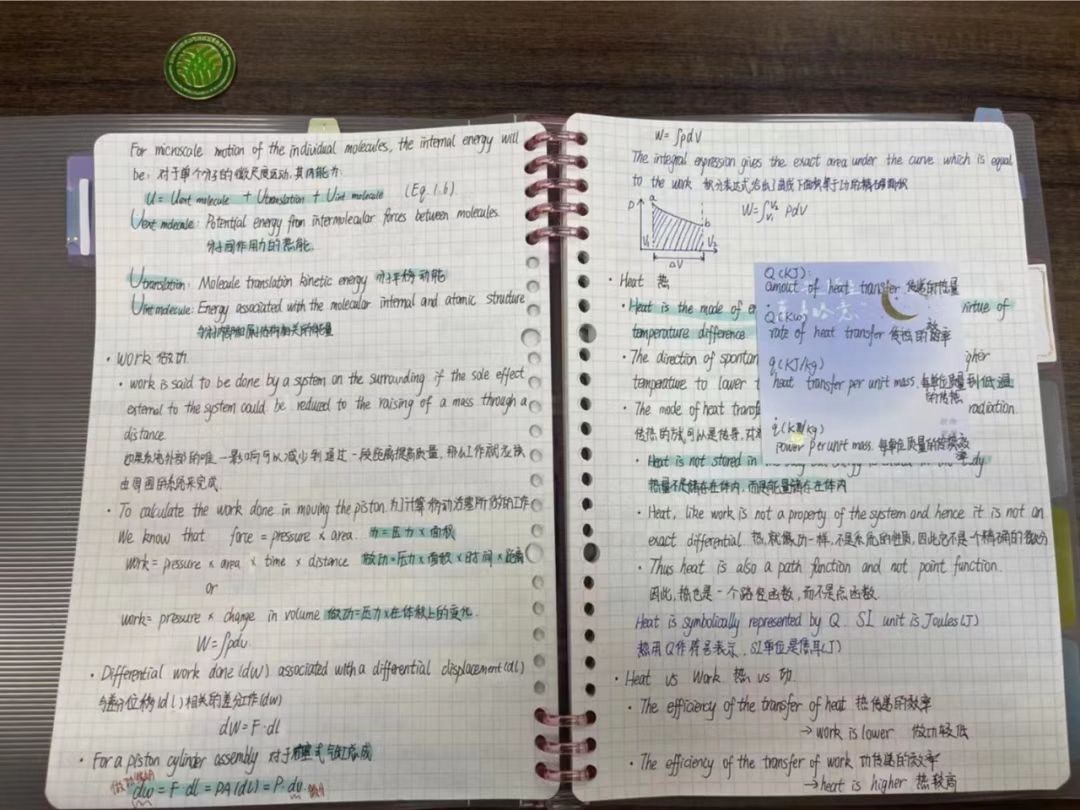 For microscale motion of the individual molecules, the internal energy will
be: 对于单个分子的微尺度运动,其内能为:
U = Uext molecule + Utranslation + Uint molecule (Eq 1.6).
Uext molecule: Potential energy from intermolecular forces between molecules.
分子间作用力的势能.
Utranslation: Molecule translation kinetic energy 分子平移动能
Uint molecule: Energy associated with the molecular internal and atomic structure
与分子内部和原子结构相关的能量
· work 做功
· work is said to be done by a system on the surrounding if the sole effect
external to the system could be reduced to the raising of a mass through a
distance.
如果系统外部的唯一影响可以减少到通过一段距离提高质量,那么工作就应该
由周围的系统来完成.
· To calculate the work done in moving the piston.为了计算移动活塞所做的工作
We know that force = pressure × area. 力=压力×面积
work = pressure × area × time × distance 做功=压力×面积×时间×距离
or
work = pressure × change in volume 做功=压力×在体积上的变化.
W = ∫pdv
· Differential work done (dW) associated with a differential displacement (dl)
与差分位移(dl)相关的差分工作(dw)
dW = F·dl
· For a piston cylinder assembly 对于活塞式气缸总成
dw = F·dl = PA(dl) = P·dv
W = ∫pdV
The integral expression gives the exact area under the curve which is equal
to the work 积分表达式给出了曲线下面积等于功的精确面积
P a b V₁ V₂ ΔV
W = ∫V₁V₂ PdV
· Heat 热
· Heat is the mode of en virtue of
temperature difference
· The direction of spontan igher
temperature to lower t 到低温
· The mode of heat transf radiation.
传热的方式可以是传导,对
· Heat is not stored in
热量不是储存在体内,而是能量储存在体内
Q (KJ):
amout of heat transfer 传递的热量
Q̇ (Kw)
rate of heat transfer 传热的效率
q (KJ/kg)
heat transfer per unit mass. 每单位质量的传热
q̇ (KW/kg)
Power per unit mass. 每单位质量的传热效率
· Heat, like work is not a property of the system and hence it is not an
exact differential. 热,就像功一样,不是系统的性质,因此它不是个精确的微分
· Thus heat is also a path function and not point function.
因此,热也是一个路径函数,而不是点函数.
Heat is symbolically represented by Q. SI unit is Joules (J)
热用Q作符号表示,SI单位是焦耳(J)
· Heat vs Work 热 vs 功.
· The efficiency of the transfer of heat 热传递的效率
→ work is lower 做功较低
· The efficiency of the transfer of work 功传递的效率
→ heat is higher 热较高